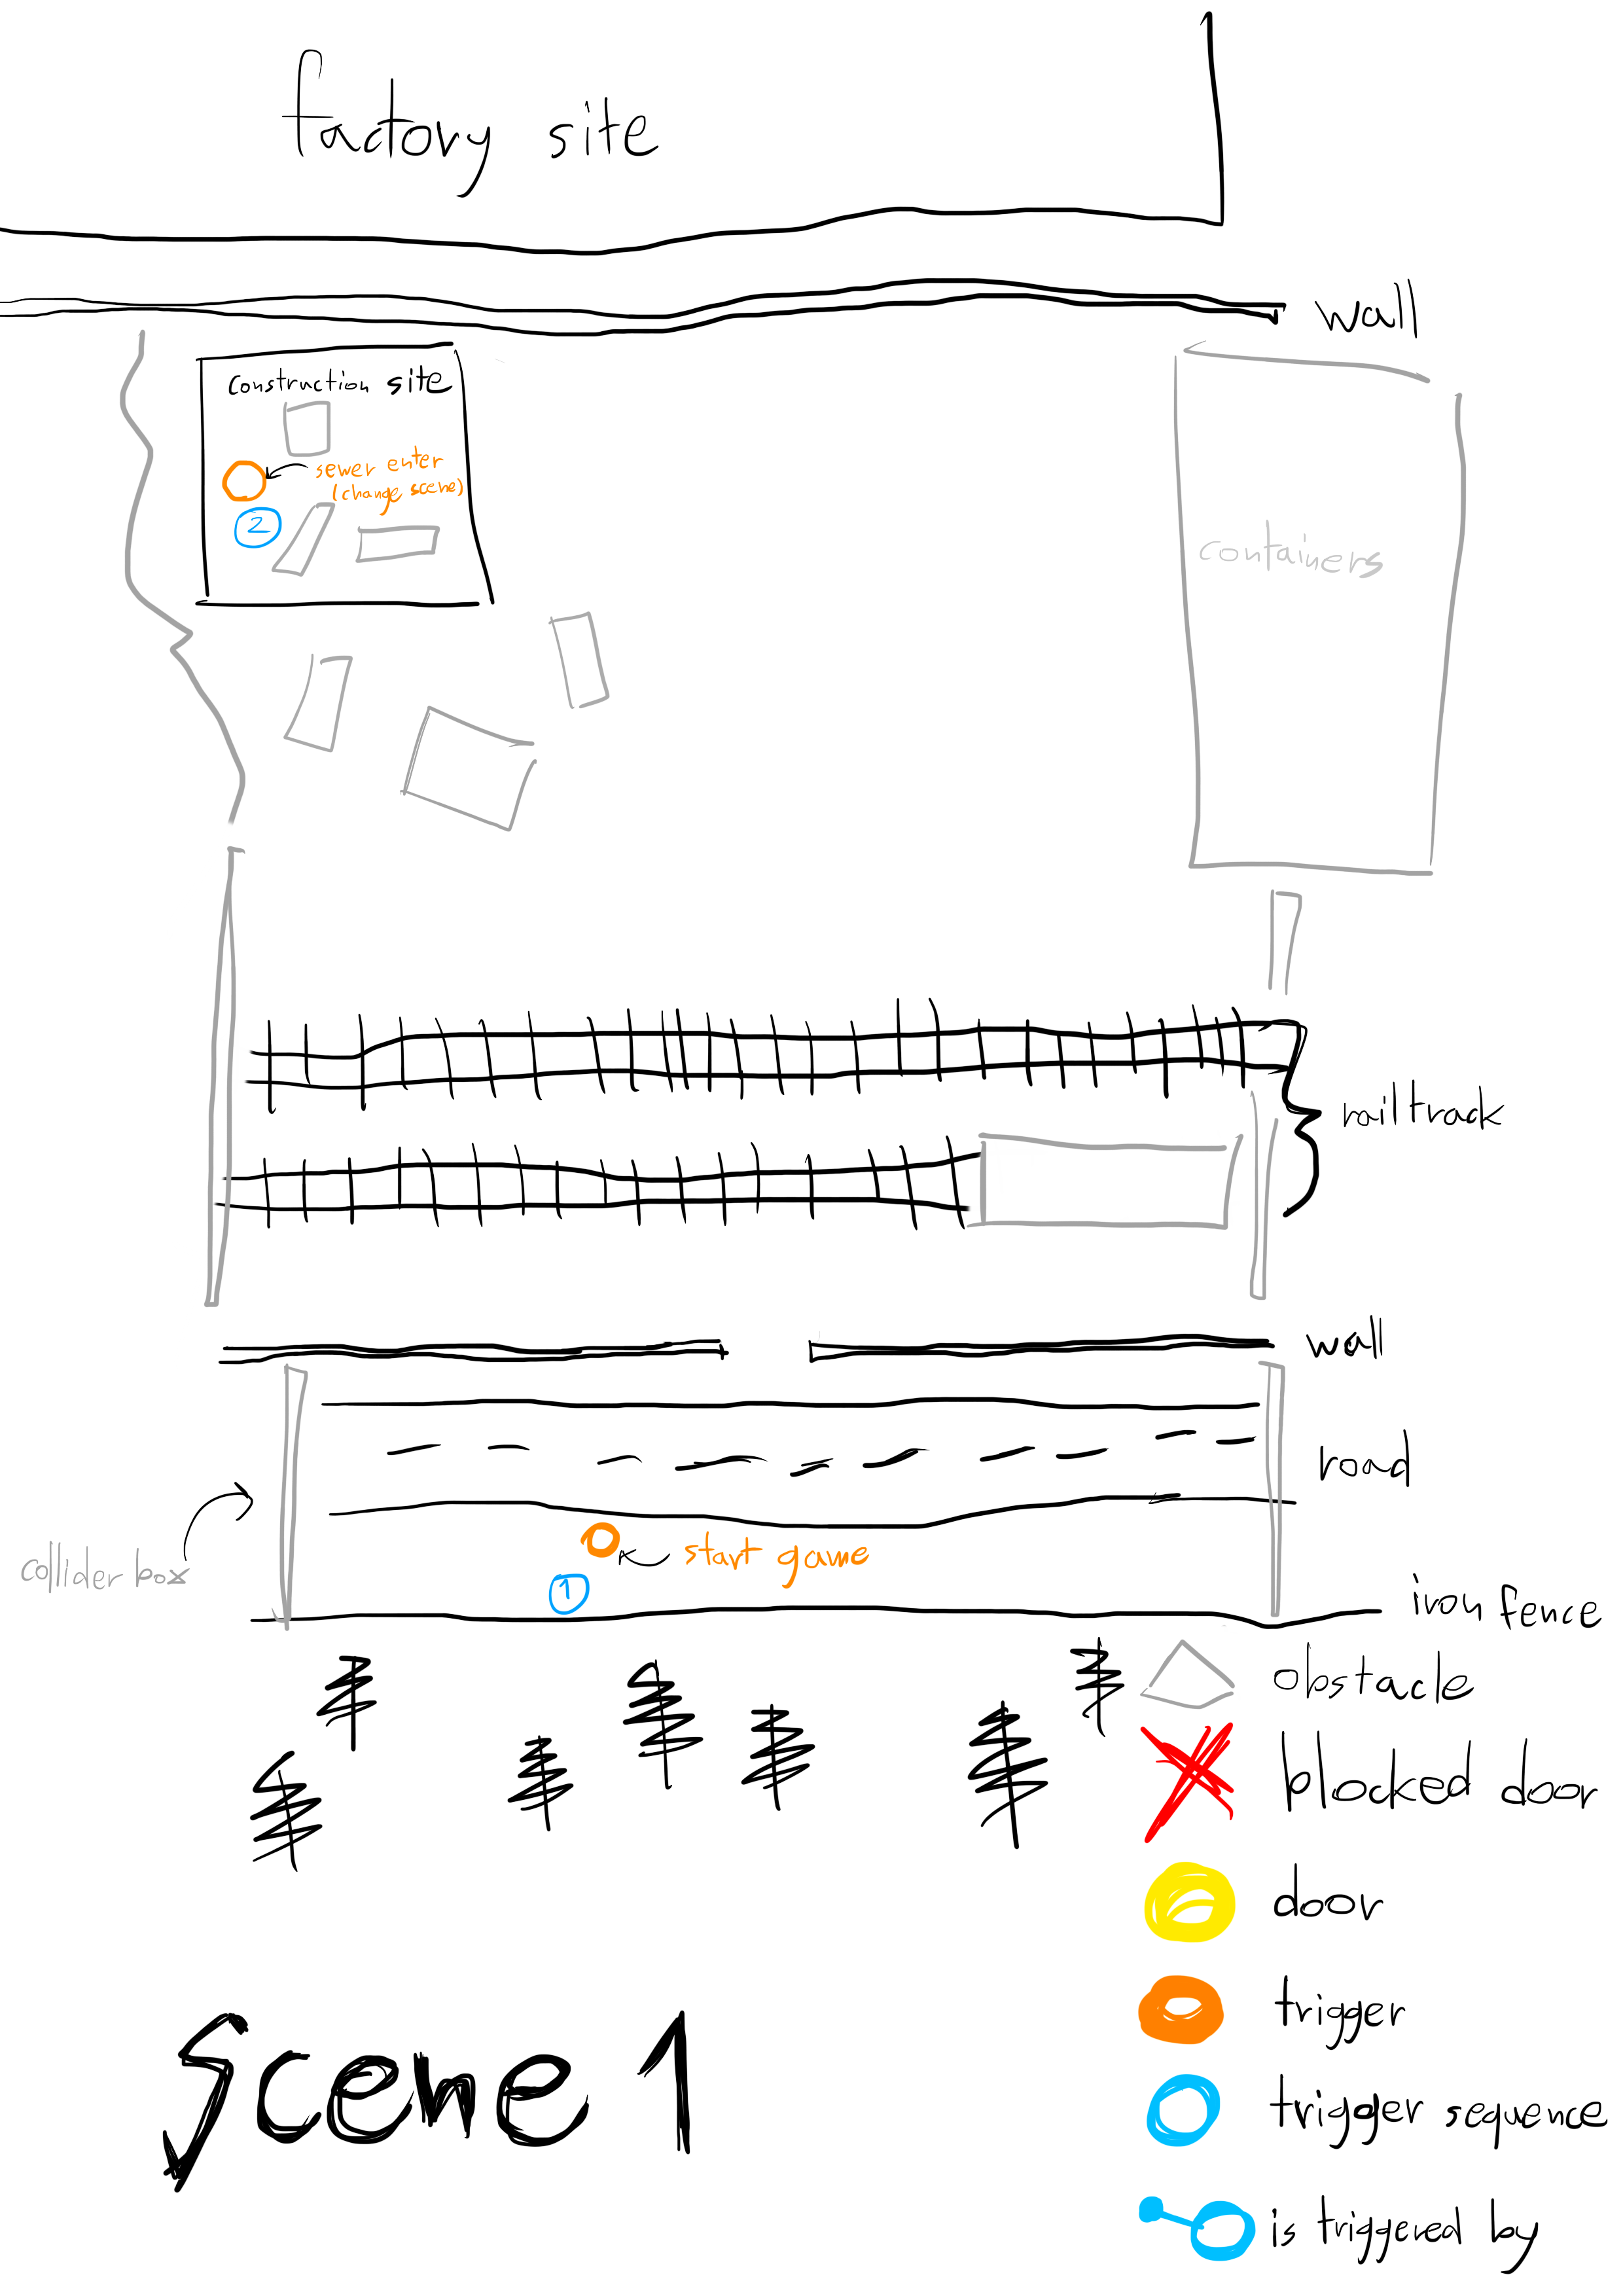 factory site
wall
construction site
sewer enter
(change scene)
2
containers
railtrack
wall
road
collider box
start game
1
iron fence
obstacle
blocked door
door
trigger
trigger sequence
is triggered by
Scene 1